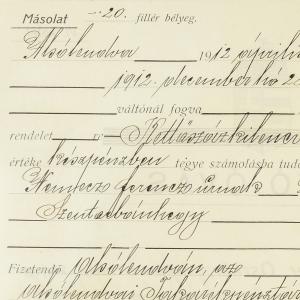 Másolat -20. fillér bélyeg.
Alsólendva 1912 április
1912. december hó 2
váltónál fogva
rendelet Kettőszázkilenc
értéke készpénzben tegye számolásba
Nemecz Ferencz úrnak
Szentorbánhegy
Fizetendő Alsólendván, az
Alsólendvai Takarékpénztár